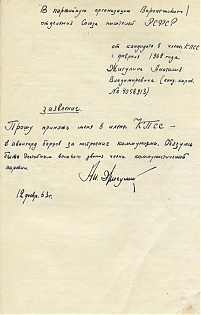 В партийную организацию Воронежского
отделения Союза писателей РСФСР
от кандидата в члены КПСС
с февраля 1962 года
Жигулина Анатолия
Владимировича (канд. карт.
№ 9056313)
заявление.
Прошу принять меня в члены КПСС —
в авангард борцов за построение коммунизма. Обязуюсь
быть достойным высокого звания члена коммунистической
партии.
Ан. Жигулин
63 г.